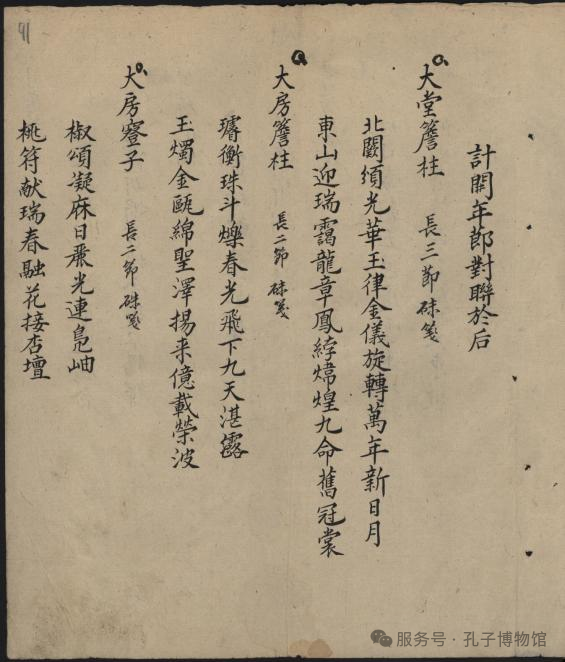 計開年節對聯於后
大堂簷柱 長三節 硃箋
北闕頌光華玉律金儀旋轉萬年新日月
東山迎瑞靄龍章鳳綍煒煌九命舊冠裳
大房簷柱 長二節 硃箋
璿衡珠斗爍春光飛下九天湛露
玉燭金甌綿聖澤揚来億載榮波
大房寮子 長二節 硃箋
椒頌凝庥日飛光連鳧岫
桃符献瑞春融花接杏壇
91
服务号·孔子博物馆